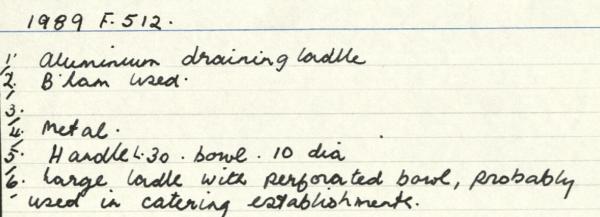 1989 F.512.
1. Aluminium draining ladle
2. B'ham used.
3.
4. Metal.
5. Handle L.30. bowl. 10 dia
6. Large ladle with perforated bowl, probably
used in catering establishments.